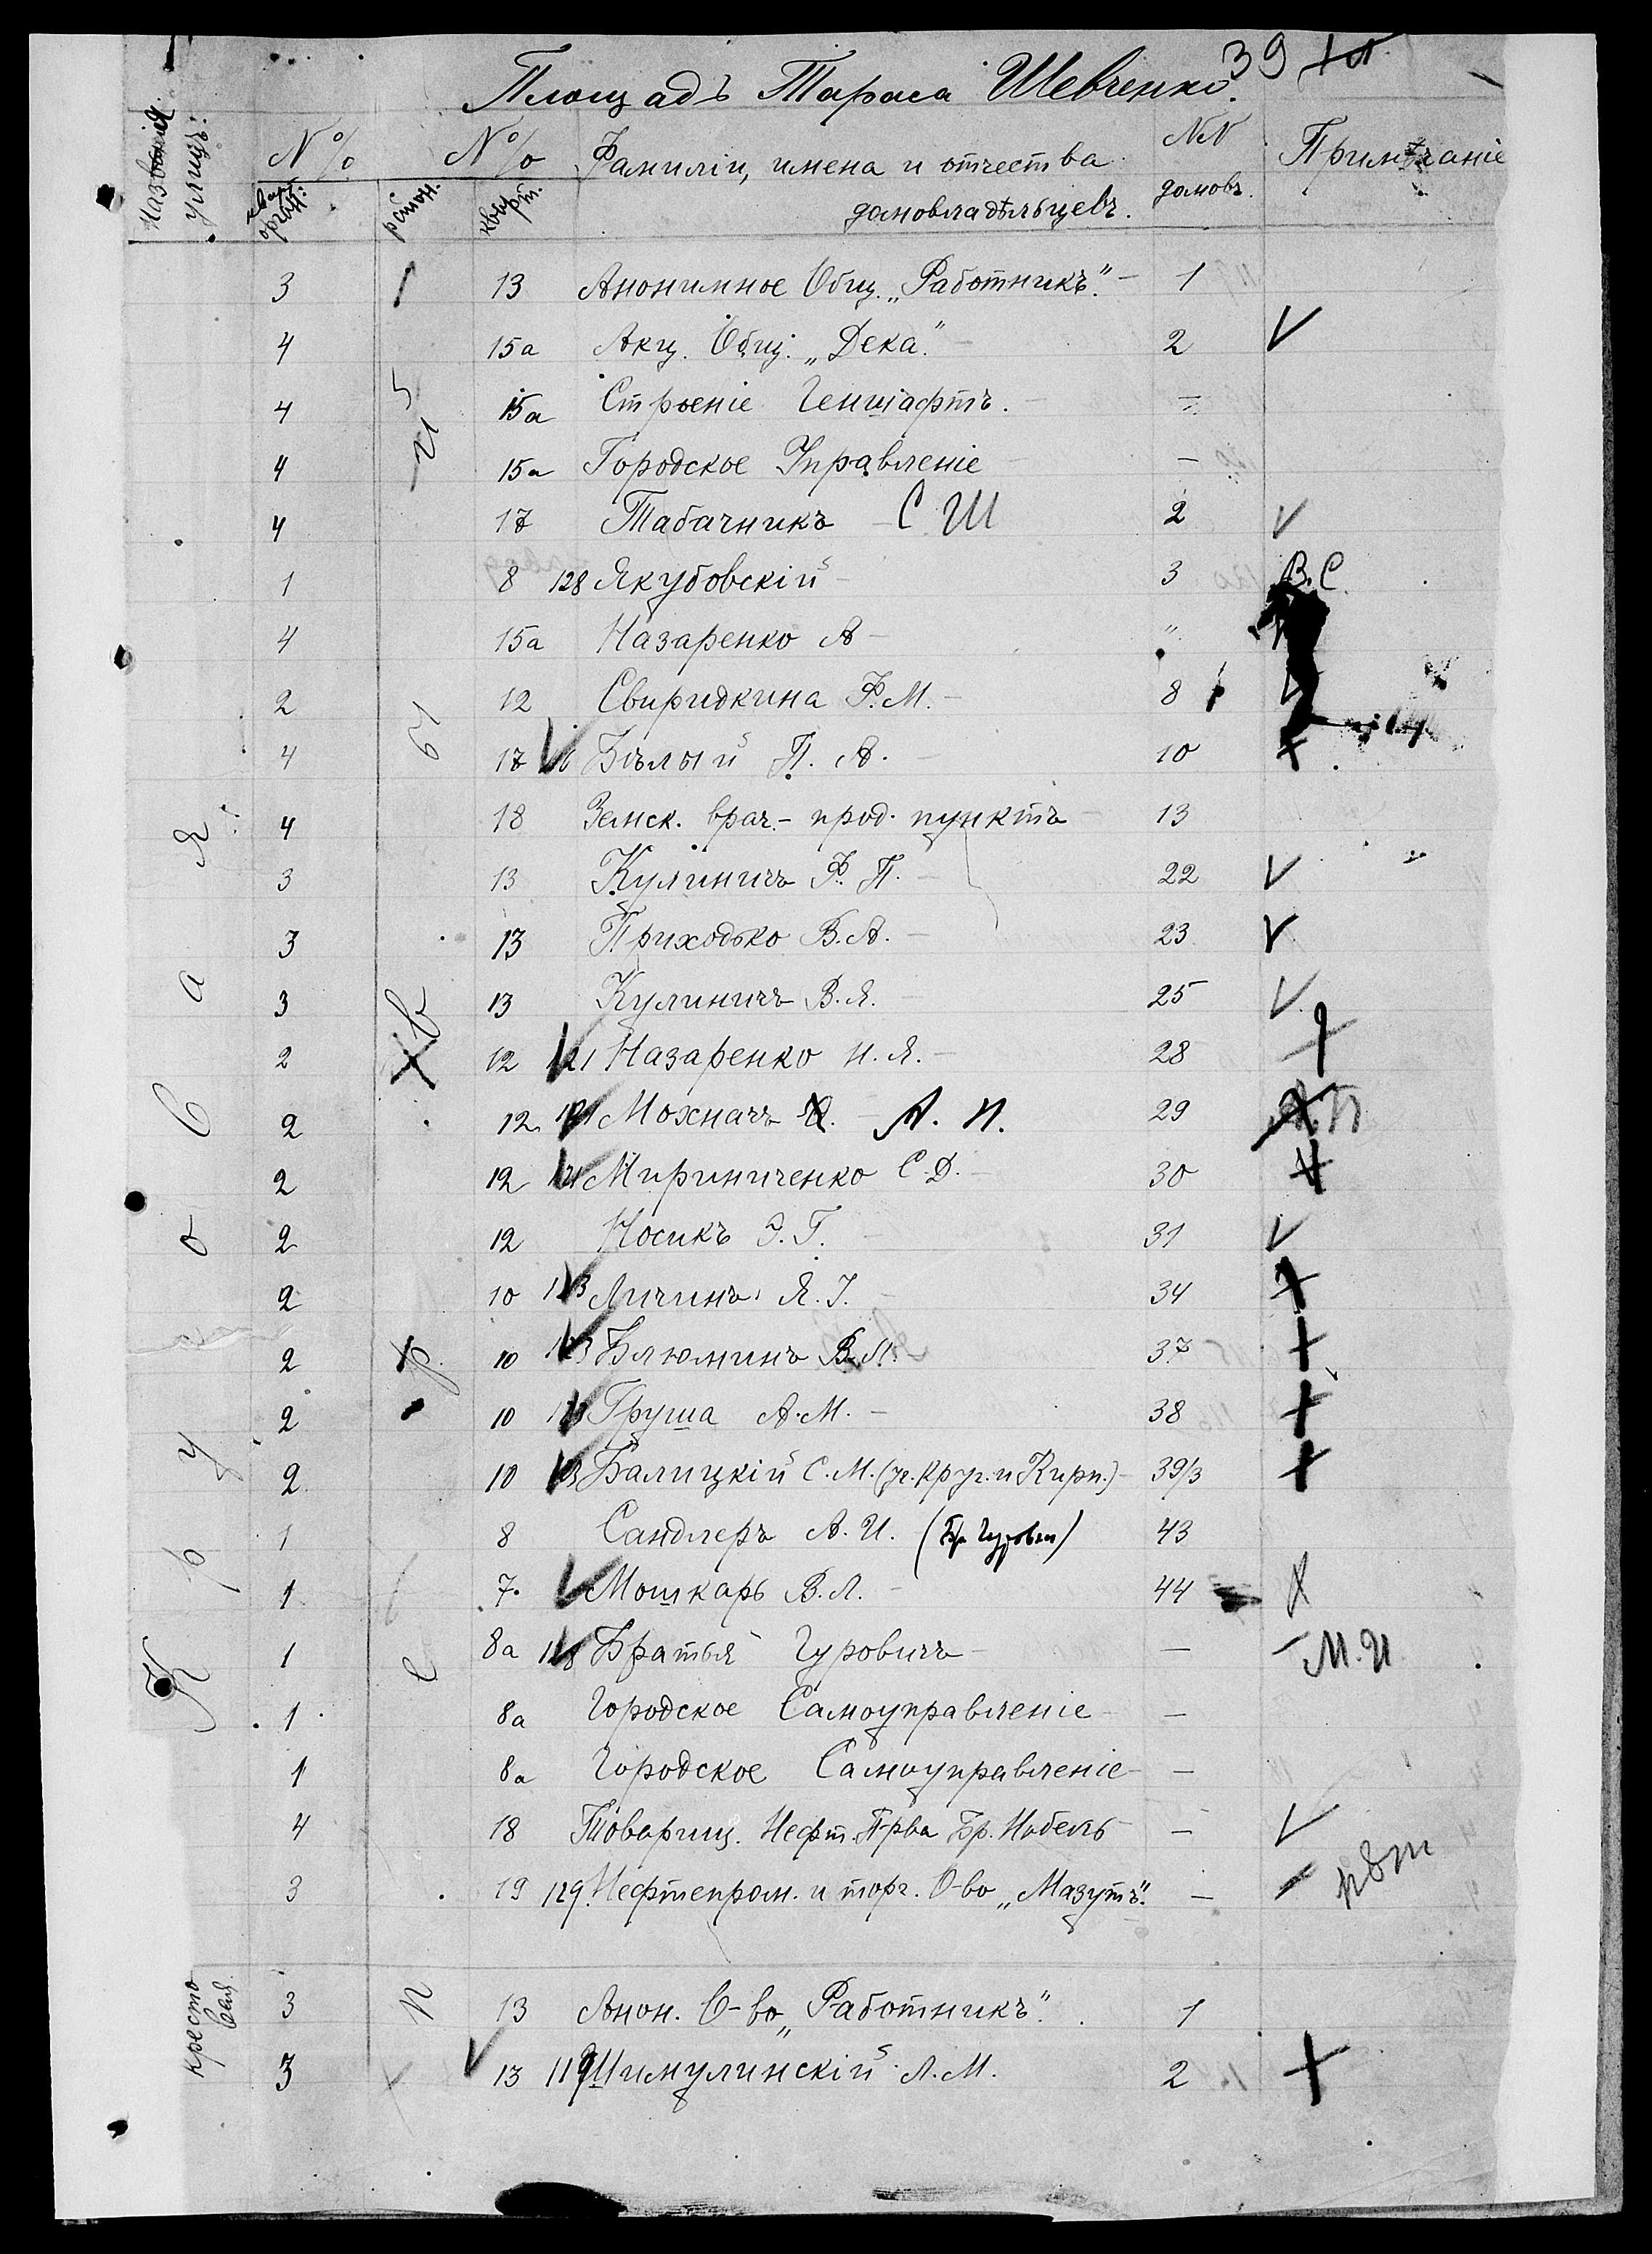 39
Площадь Тараса Шевченко.
Названія улицъ:
№% № % Фамиліи, имена и отчества домовладѣльцевъ. №№ домовъ. Примѣчаніе
3 13 Анонимное Общ. „Работникъ". — 1
4 15а Акц. Общ. „Дека." — 2 V
4 15а Строеніе Геншафтъ. — —
4 15а Городское Управленіе — —
4 17 Табачникъ — С Ш 2 V
1 8 128 Якубовскій — 3 В.С.
4 15а Назаренко А — "
2 12 Свиридкина Ф.М. — 8 V
4 17 Бѣлый П. А. — 10 +
4 18 Земск. врач.- прод. пунктъ — 13
3 13 Кулиничъ Ф. П. — 22 V
3 13 Приходько В.А. — 23 V
3 13 Кулиничъ В.Я. — 25 V
2 12 121 Назаренко И.Я. — 28
2 12 121 Мохначъ А. П. 29
2 12 121 Мириниченко С.Д. — 30 +
2 12 Носикъ Э.Г. — 31 V
2 10 123 Личинъ Я.І. — 34 +
2 10 123 Блюминъ В.М. 37 +
2 10 123 Груша А.М. — 38 +
2 10 123 Балицкій С.М. (уг. Круг. и Кирп.) — 39/3 +
1 8 Сандлеръ А.И. (Бр. Гурович) 43
1 7. Мошкарь В.Л. — 44 X
1 8а 128 Братья Гуровичъ — — М.И
1 8а Городское Самоуправленіе — —
1 8а Городское Самоуправленіе — —
4 18 Товарищ. Нефт. Пр-ва Бр. Нобель — — V
3 19 129. Нефтепром. и торг. О-во „Мазутъ". —
К р у г о в а я
1-й
Кресто вая
3 13 Анон. О-во „Работникъ". 1
3 13 119 Шимулинскій Л.М. 2 +